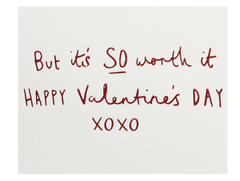 But it's SO worth it
HAPPY Valentine's DAY
XOXO